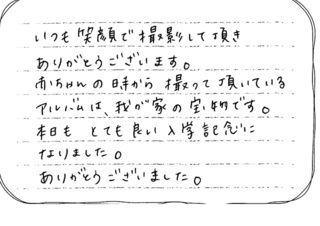 いつも笑顔で撮影して頂き
ありがとうございます。
赤ちゃんの日時から撮って頂いている
アルバムは、我が家の宝物です。
本日も とても良い入学記念に
なりました。
ありがとうございました。